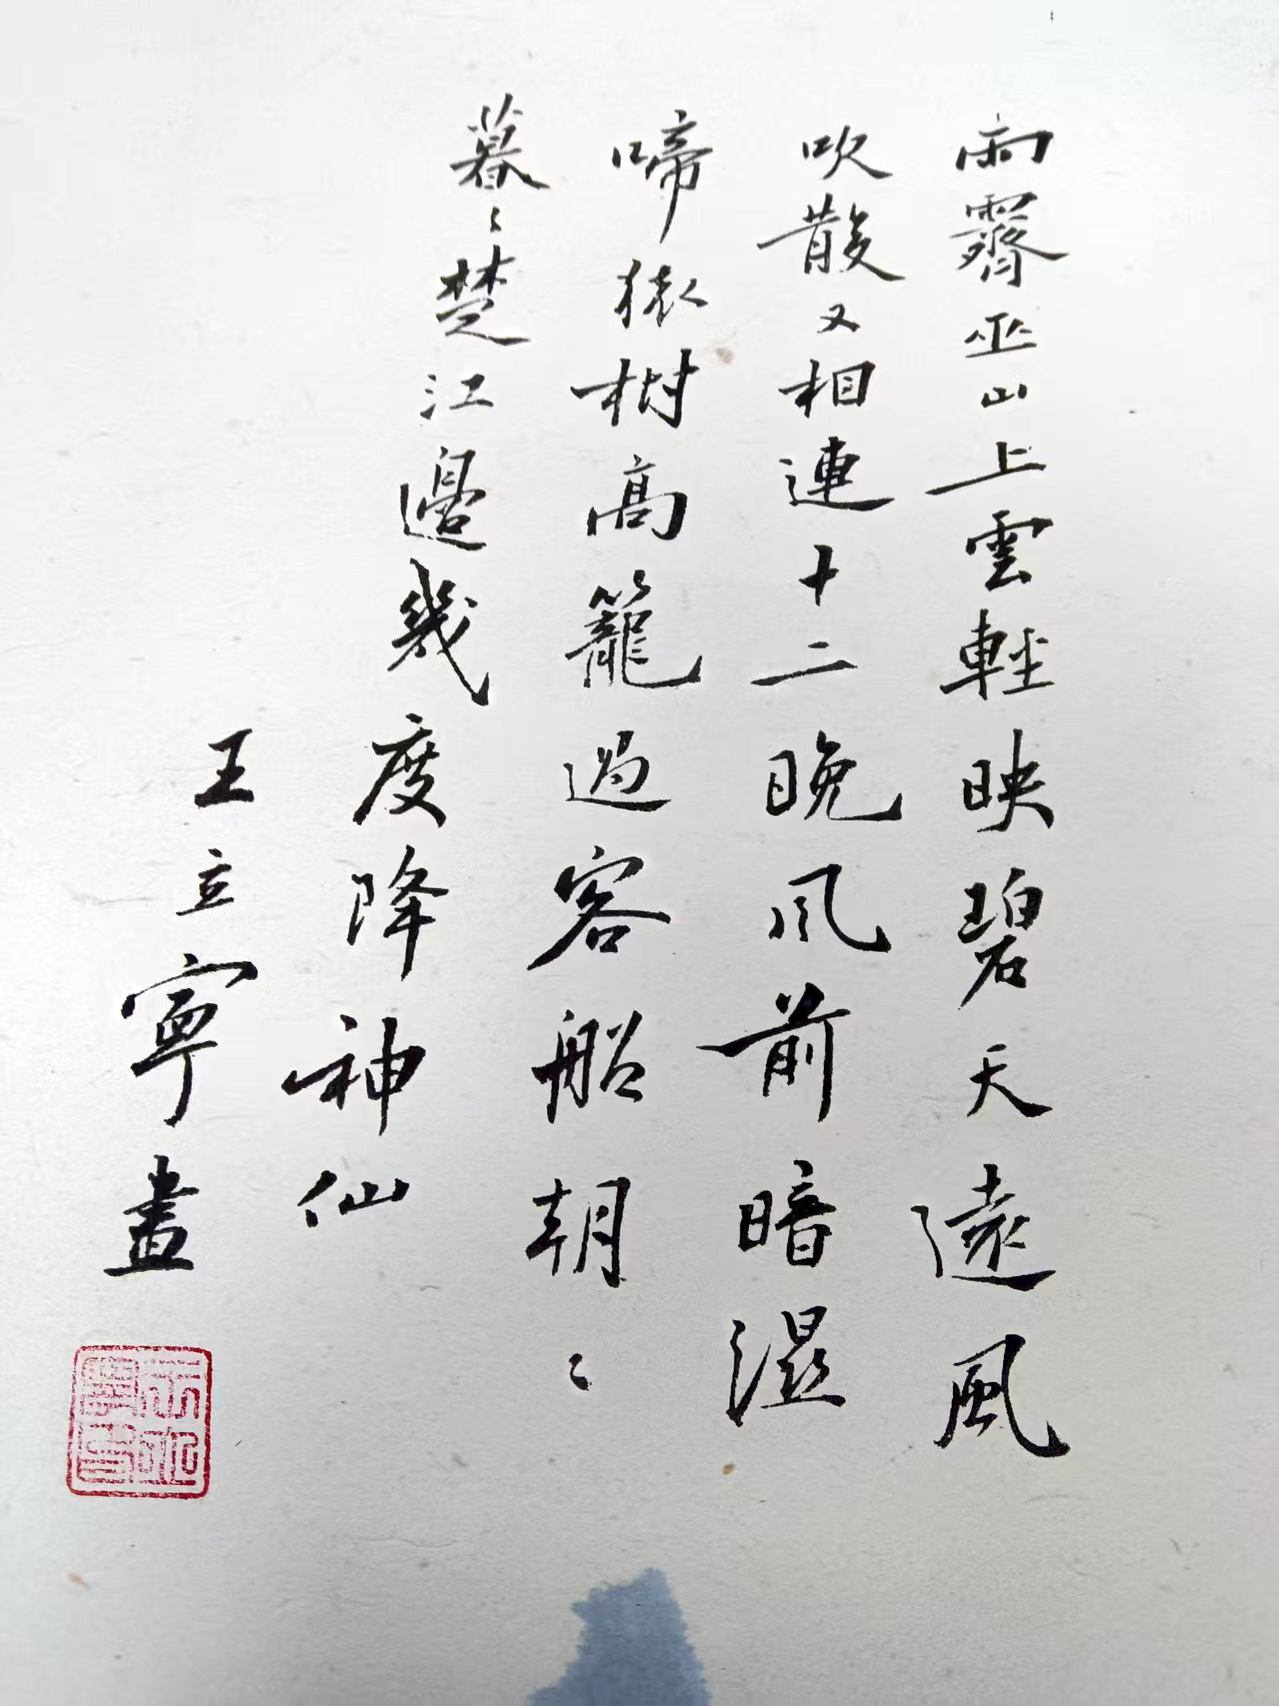 雨霽巫山上雲輕映碧天遠風
吹散又相連十二晚风前暗濕
啼猿樹高籠過客船朝〻
暮〻楚江邊幾度降神仙
王立寧畫